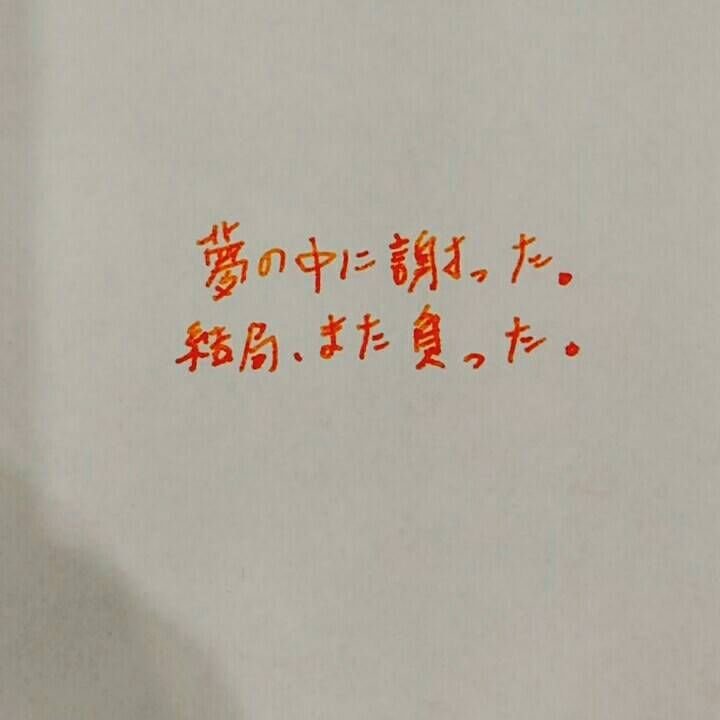 夢の中に謝った。
結局、また負った。